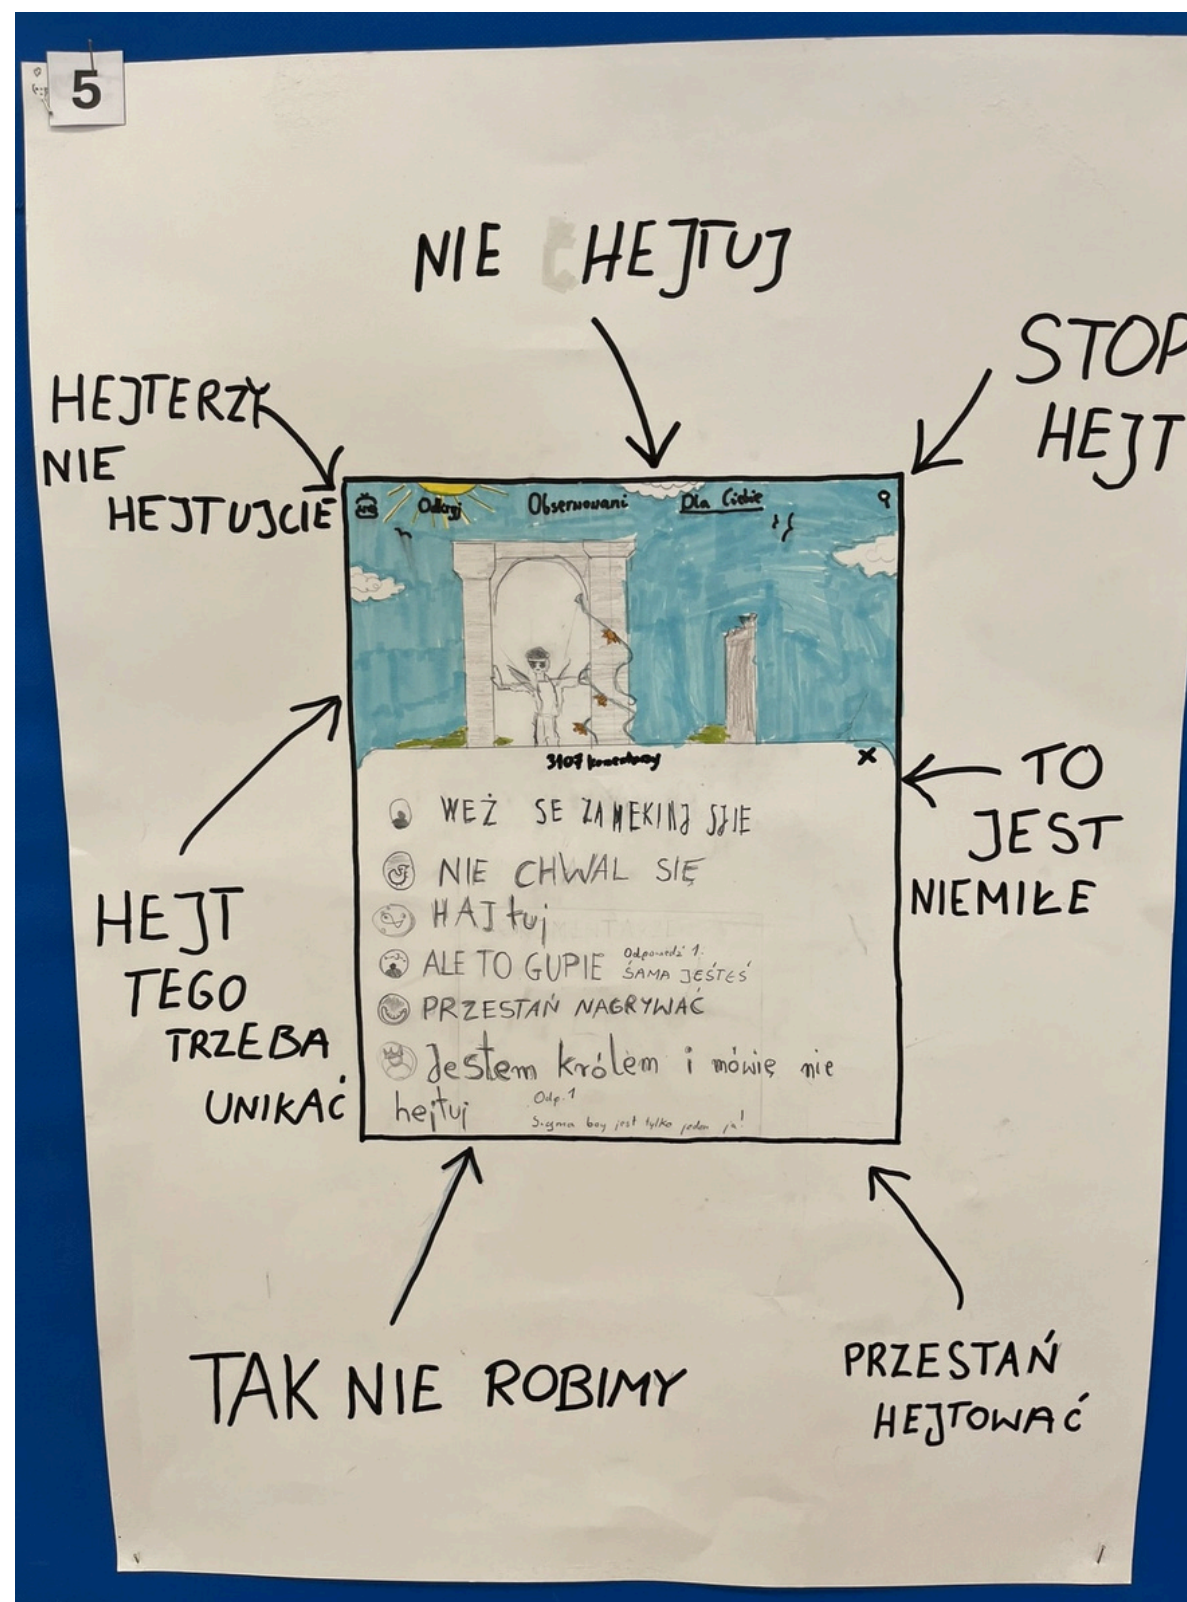 5
NIE HEJTUJ
STOP
HEJT
HEJTERZY
NIE
HEJTUJCIE
LIVE
Odkryj Obserwowani Dla Ciebie
3107 komentarzy X
WEŻ SE ZAMEKINJ SJIE
NIE CHWAL SIĘ
HAJtuj
ALE TO GUPIE
Odpowiedź 1:
SAMA JESTEŚ
PRZESTAŃ NAGRYWAĆ
Jestem królem i mówię nie
hejtuj
Odp. 1
Sigma boy jest tylko jeden ja!
HEJT
TEGO
TRZEBA
UNIKAĆ
TO
JEST
NIEMIŁE
TAK NIE ROBIMY
PRZESTAŃ
HEJTOWAĆ